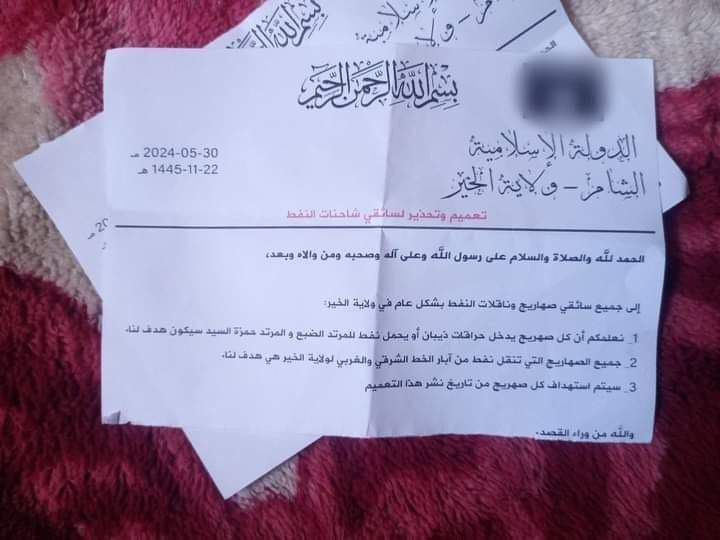 بسم الله الرحمن الرحيم
الدولة الإسلامية
الشام – ولاية الخير
2024-05-30 مـ
1445-11-22 هـ
تعميم وتحذير لسائقي شاحنات النفط
الحمد لله والصلاة والسلام على رسول الله وعلى آله وصحبه ومن والاه وبعد،
إلى جميع سائقي صهاريج وناقلات النفط بشكل عام في ولاية الخير:
1_ نعلمكم أن كل صهريج يدخل حراقات ذيبان أو يحمل نفط للمرتد الضبع و المرتد حمزة السيد سيكون هدف لنا.
2_ جميع الصهاريج التي تنقل نفط من آبار الخط الشرقي والغربي لولاية الخير هي هدف لنا.
3_ سيتم استهداف كل صهريج من تاريخ نشر هذا التعميم
والله من وراء القصد.